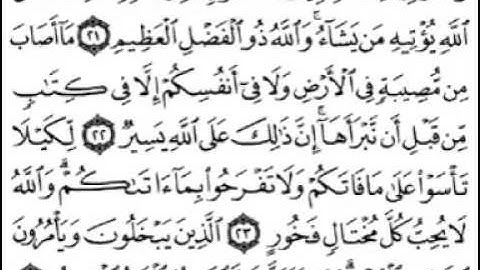 اللَّهِ يُؤْتِيهِ مَن يَشَآءُ ۚ وَاللَّهُ ذُو الْفَضْلِ الْعَظِيمِ ﴿٢١﴾ مَآ أَصَابَ
مِن مُّصِيبَةٍ فِي الْأَرْضِ وَلَا فِىٓ أَنفُسِكُمْ إِلَّا فِى كِتَٰبٍ
مِّن قَبْلِ أَن نَّبْرَأَهَآ ۚ إِنَّ ذَٰلِكَ عَلَى اللَّهِ يَسِيرٌ ﴿٢٢﴾ لِّكَيْلَا
تَأْسَوْا۟ عَلَىٰ مَا فَاتَكُمْ وَلَا تَفْرَحُوا۟ بِمَآ ءَاتَىٰكُمْ ۗ وَاللَّهُ
لَا يُحِبُّ كُلَّ مُخْتَالٍ فَخُورٍ ﴿٢٣﴾ الَّذِينَ يَبْخَلُونَ وَيَأْمُرُونَ